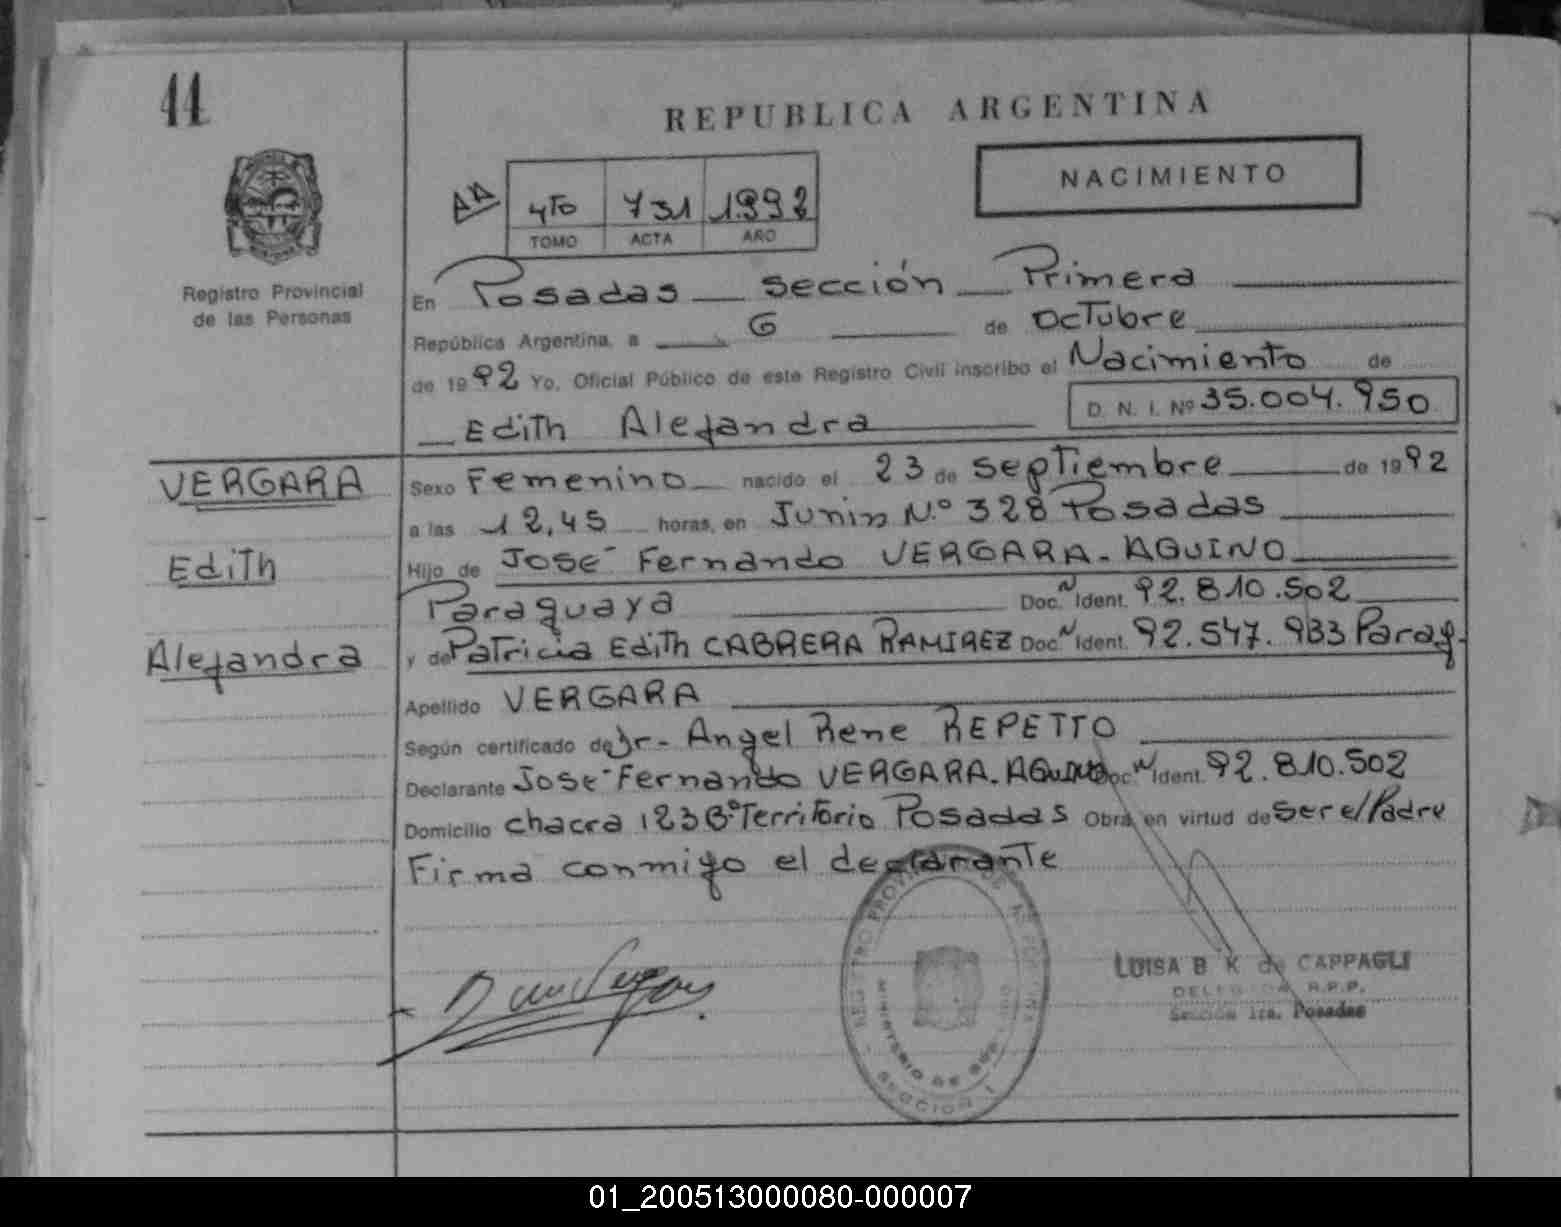 11
REPUBLICA ARGENTINA
NACIMIENTO
4TO 731 1992
TOMO ACTA AÑO
Registro Provincial
de las Personas
En Posadas sección Primera
República Argentina, a 6 de octubre
de 1992 Yo, Oficial Público de este Registro Civil inscribo el Nacimiento de
Edith Alejandra D. N. I. Nº 35.004.950
VERGARA
Edith
Alejandra
Sexo Femenino nacido el 23 de septiembre de 1992
a las 12,45 horas, en Junin N.º 328 Posadas
Hijo de José Fernando VERGARA - AQUINO
Paraguaya Doc. Ident. 92.810.502
y de Patricia Edith CABRERA RAMIREZ Doc. Ident. 92.547.933 Parag.
Apellido VERGARA
Según certificado de Dr - Angel Rene REPETTO
Declarante José Fernando VERGARA - AQUINO Doc. Ident. 92.810.502
Domicilio chacra 123 Bº Territorio Posadas Obra en virtud de ser el Padre
Firma conmigo el declarante
REGISTRO PROVINCIAL DE LAS PERSONAS
MINISTERIO DE GOB
SECCION 1
LUISA B K de CAPPAGLI
DELEGADA R.P.P.
Sección 1ra. Posadas
01_200513000080-000007